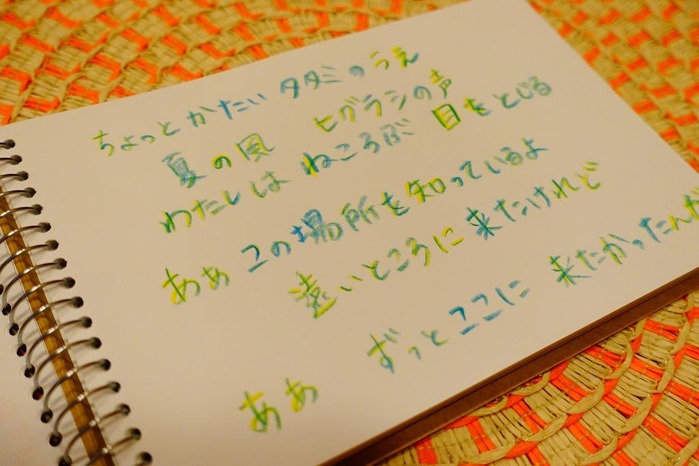 ちょっと かたい タタミのうえ
夏の風 ヒグラシの声
わたしは ねころぶ 目をとじる
ああ この場所を知っているよ
遠いところに来たけれど
ああ ずっとここに 来たかったんだ